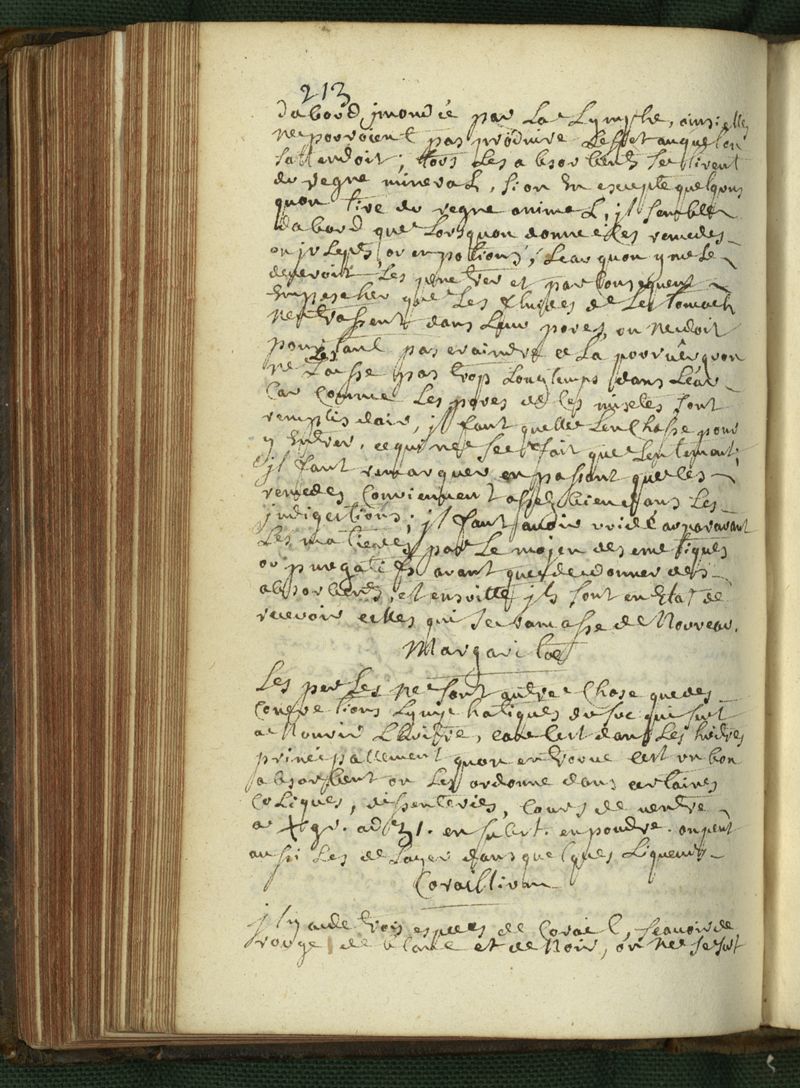 213
dabord jmondée par La Lymphe, ainsi elles
ne pourroient pas produire Leffet auquel on
sattendoit; tous Les absorbents se tirent
du regne mineral, si on en excepte quelques uns
quon tire du regne animal, jl semble
dabord que Lorsquon donne ces remedes
en juleps, ou en potions, Leau quon y mesle
devroit Les penetrer et par consequent
empescher que Les fluides de Lestomach
nentrassent dans Leur pores, on ne doit
pourtant pas craindre cela pourvû quon
ne Les Laisse pas trop Longtemps dans Leau
Car comme Les pores de ces mixtes sont
remplis dair, jl faut quelle Len Chasse pour
y entrer, ce qui ne se fait que Lentement;
jl faut remarquer en passant que ces
remedes Conviennent assez bien dans Les
jndigestions; jl faut avoir vuidé auparavant
Les matieres par Le mojen des emetiques
ou purgatifs avant que de donner des
absorbents, et ensuitte jls sont en Etat de
recevoir celles qui se ramasse de Nouveau.
Margaritae
Les perles ne sont autre Chose que des
Concretions Lymphatiques du suc qui sert
a Nourir Lhuitre, car cest dans Les huitres
principallement quon en trouve cest un bon
absorbent on Les ordonne dans certaines
Coliques, dissenteries, Cours de ventre
a X gr. ad ʒ1. en subst. en poudre. on peut
aussi Les delayer dans quelques Liqueurs
Coraillium
jl y a de trois especes de Corail, scavoir de
rouge de blanc et de Noir, on ne se sert